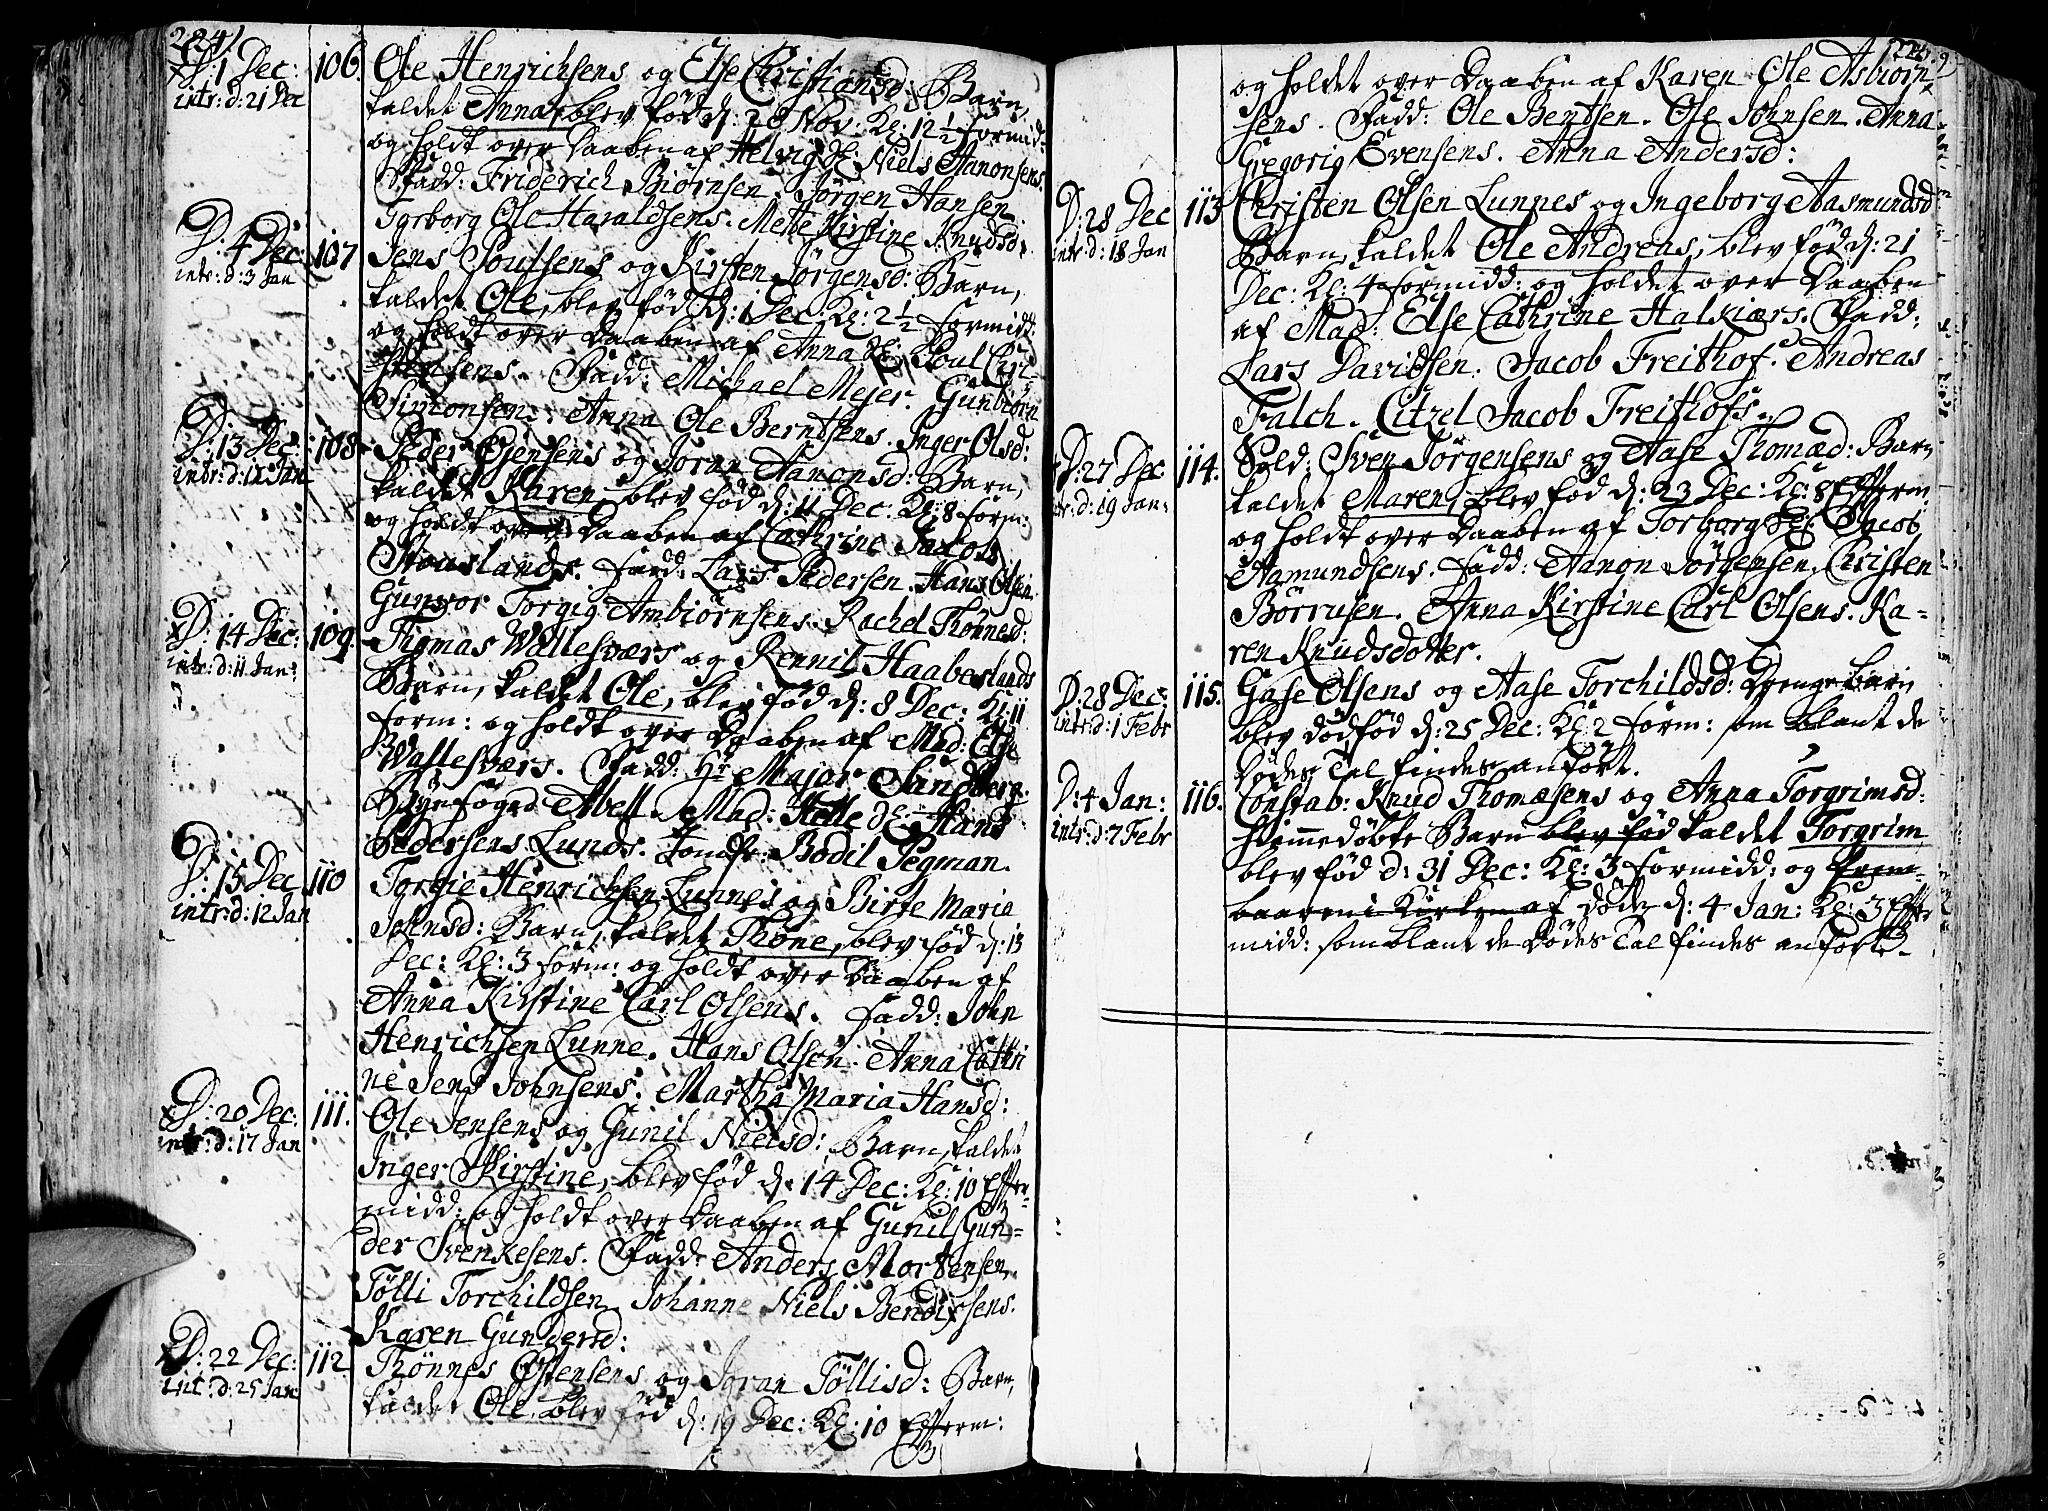 224
D: 1 Dec: 106. Ole Henrichsens og Else Christiansd: Barn,
intr: d: 21 Dec kaldet Anna blev fød d: 28 Nov: Kl: 12½ formid:
og holdt over Daaben af Helvig Niels Aanonsens.
Fadd: Friderich Biørnsen. Jörgen Hansen.
Torborg Ole Haraldsens. Mette Kirstine Knudsd:
D: 4 Dec: 107 Jens Poulsens og Kirsten Jörgensd: Barn,
intr: d: 3 Jan kaldet Ole, blev fød d: 1 Dec: Kl: 2½ formidd:
og holdt over Daaben af Anna Poul Chri-
stensens. Fadd: Michael Mejer. Gunbiörn
Simonsen. Anna Ole Berntsens. Inger Olsd:
D: 13 Dec: 108. Peder Ejensens og Joran Aanonsd: Barn,
intr: d: 12 Jan kaldet Karen blev fød d: 11 Dec: Kl: 8 form:
og holdt over Daaben af Cathrine Jacob
Stouslands. Fadd: Lars Pedersen. Hans Olsen.
Gunvor Torgig Ambiörnsens. Rachel Thönnesd:
D: 14 Dec: 109. Thomas Wallesværs og Rennil Haabeslands
intr: d: 11 Jan: Barn, kaldet Ole, blev fød d: 8 Dec: Kl: 11
form: og holdt over Daaben af Mad: Else
Wallesværs. Fadd: Hr Major Sandberg.
Byefoged Abell. Mad: Helle Hans
Pedersens Lunds. Jomfr: Bodil Pegman.
D: 15 Dec 110 Torgie Henrichsen Lunnes og Birte Maria
intr: d: 12 Jan Johnsd: Barn, kaldet Thöne, blev fød d: 13
Dec: Kl: 3 form: og holdt over Daaben af
Anna Kirstine Carl Olsens. Fadd: John
Henrichsen Lunne. Hans Olsen. Anna Cathri
ne Jens Johnsens. Martha Maria Hansd:
D: 20 Dec: 111. Ole Jensens og Gunil Nielsd: Barn, kaldet
intr: d: 17 Jan Inger Kirstine, blev fød d: 14 Dec: Kl: 10 Efter-
midd: og holdt over Daaben af Gunil Gun-
der Svenkesens. Fadd: Anders Mortensen.
Tölli Torchildsen Johanne Niels Bendixsens.
Karen Gundersd:
D: 22 Dec: 112 Thönnes Ostensens og Joran Töllisd: Barn,
int: d: 25 Jan kaldet Ole, blev fød d: 19 Dec: Kl: 10 Efterm:
og holdet over Daaben af Karen Ole Asbiörn-
sens. Fadd: Ole Bentsen. Ole Johnsen. Anna
Gregorig Evensens. Anna Andersd:
D: 28 Dec 113 Christen Olsen Lunnes og Ingeborg Aasmundsd
intr: d: 18 Jan Barn, kaldet Ole Andreas, blev fød d: 21
Dec: Kl: 4 formidd: og holdet over Daaben
af Mad: Else Cathrine Halkiærs. Fadd:
Lars Davidsen. Jacob Freithof. Andreas
Falch. Citzel Jacob Freithofs.
D: 27 Dec 114. Sold: Sven Jörgensens og Aase Thomæd: Barn
intr: d: 19 Jan: kaldet Maren, blev fød d: 23 Dec: Kl: 8 Efterm:
og holdt over Daaben af Torborg Jacob
Aamundsens. Fadd: Aanon Jörgensen. Christen
Börrusen. Anna Kirstine Carl Olsens. Ka-
ren Knudsdotter.
D: 28 Dec: 115. Gase Olsens og Aase Torchildsd: Drengebarn
intr: d: 1 Febr blev dödfød d: 25 Dec: Kl: 2 form: som blant de
Dödes Tal findes anfört.
D: 4 Jan: 116. Constab: Knud Thomæsens og Anna Torgrimsd:
intr: d: 7 Febr hiemmedöbte Barn blev fød kaldet Torgrim,
blev fød d: 31 Dec: Kl: 3 formidd: og frem-
baaren i Kirken af döde d: 4 Jan: Kl: 3 Efter
midd: som blant de Dödes Tal findes anfört.